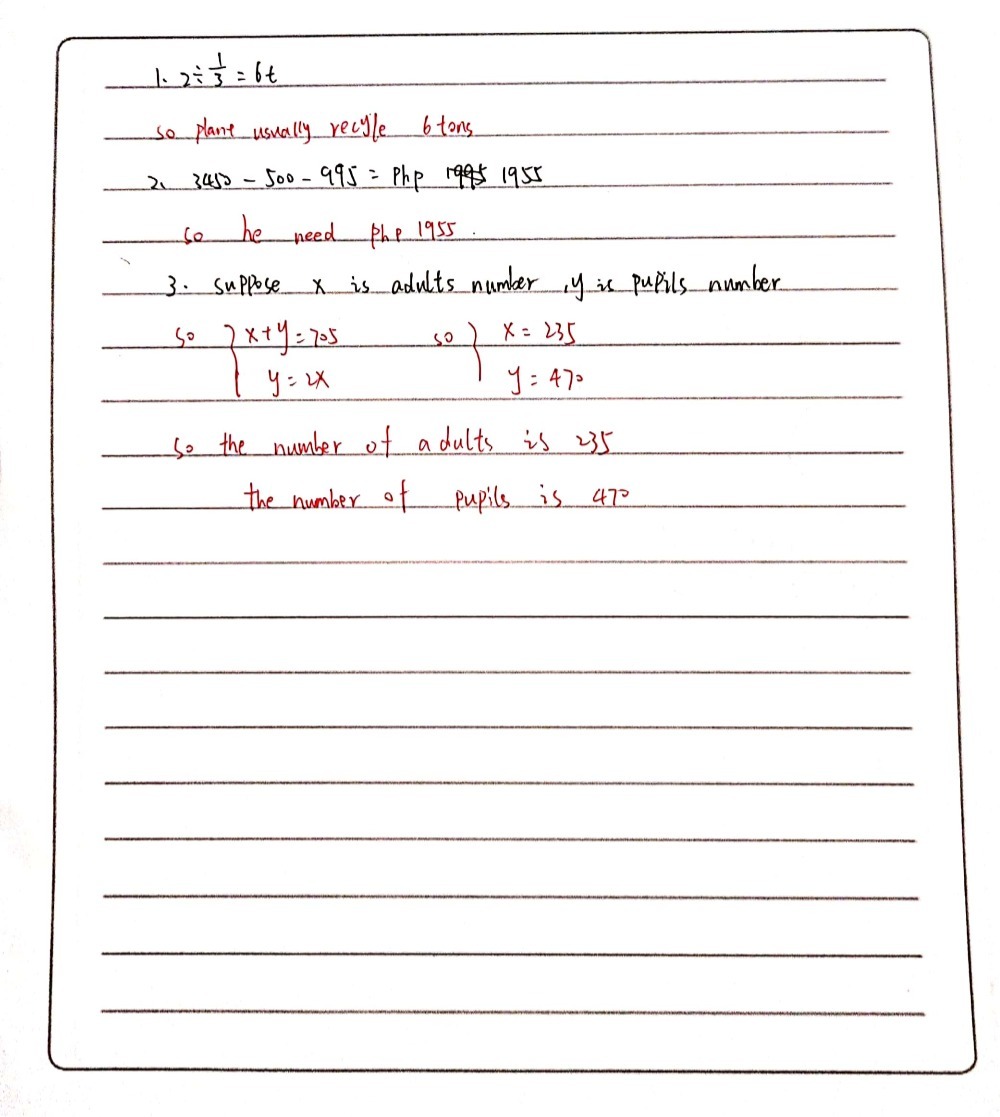 1. 2÷1/3 = 6t
so plant usually recyle 6 tons
2. 3450 - 500 - 995 = Php 1955
so he need php 1955.
3. suppose x is adults number, y is pupils number
so { x+y=705 so { x = 235
y=2x y = 470
so the number of adults is 235
the number of pupils is 470